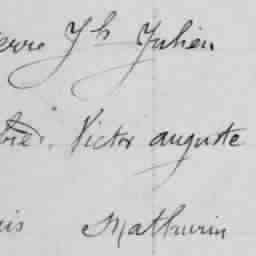 erre Jh Julien
Victor auguste
is Mathurin